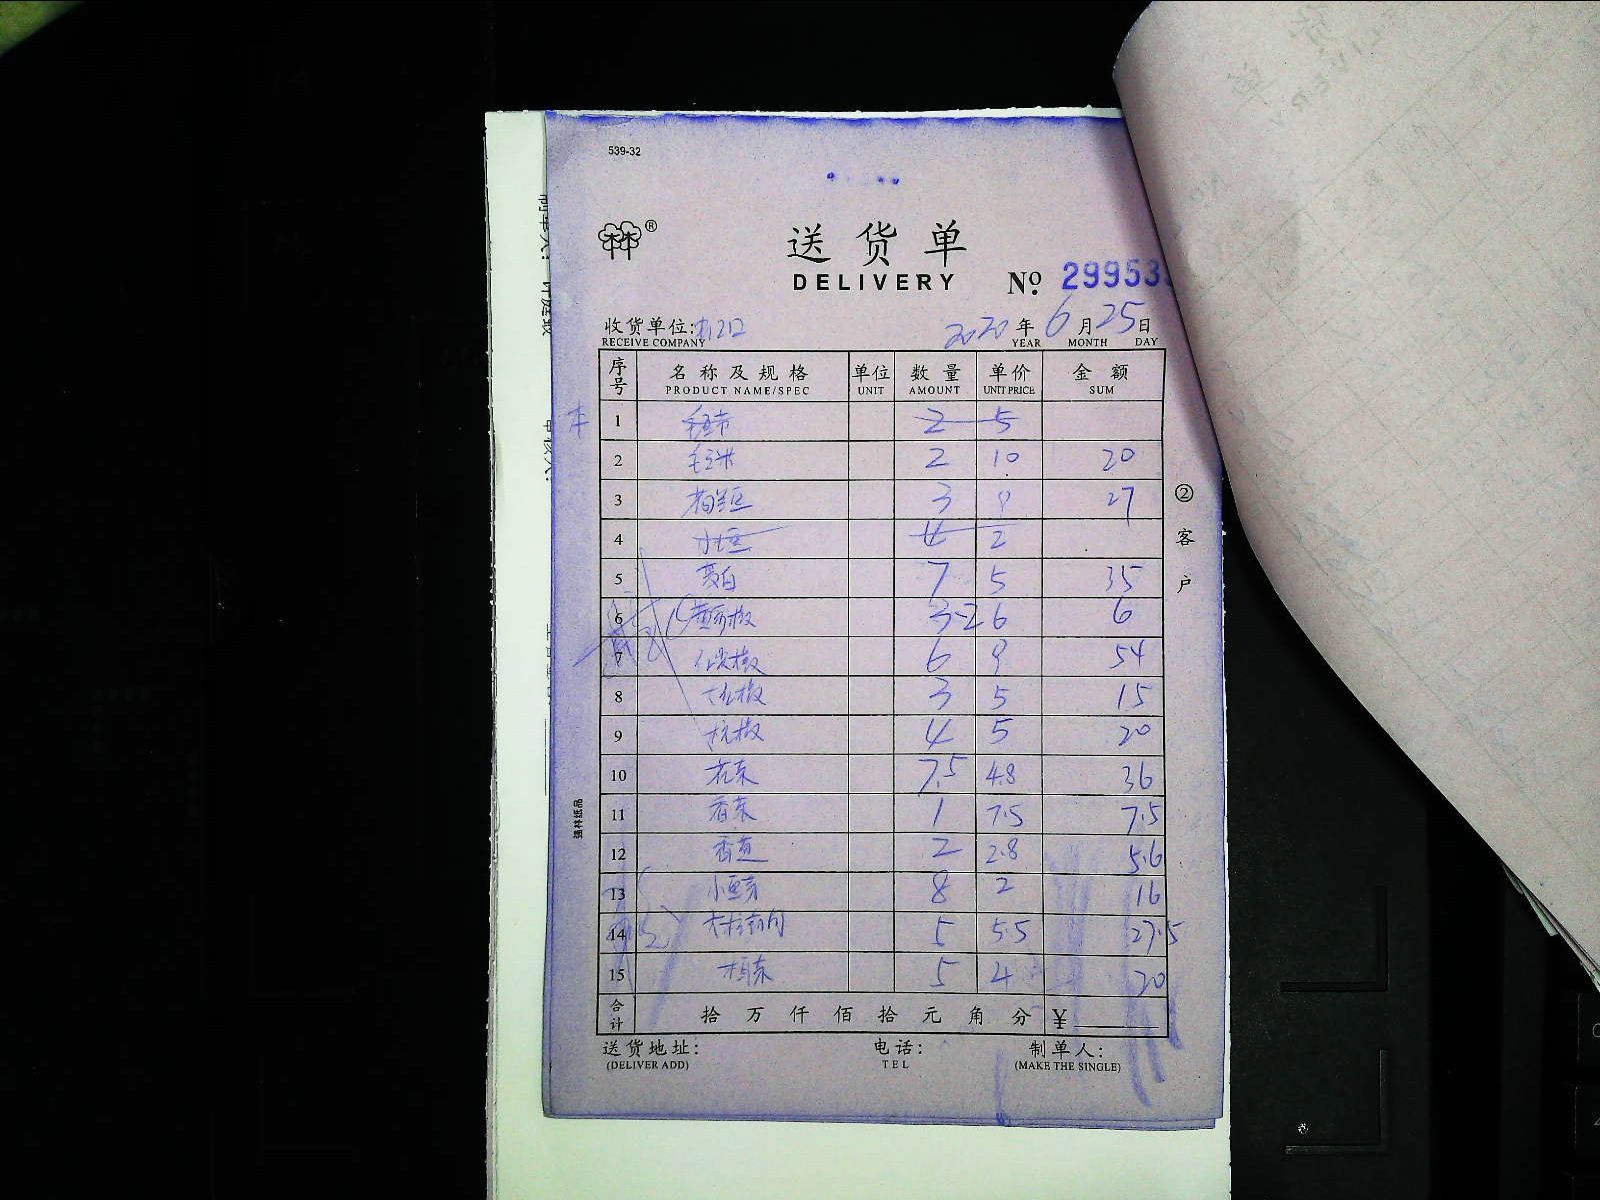 539-32
林®
送货单
DELIVERY
№ 29953
收货单位: 2020 年 6 月 25 日
RECEIVE COMPANY YEAR MONTH DAY
序号 名称及规格 单位 数量 单价 金额
PRODUCT NAME/SPEC UNIT AMOUNT UNIT PRICE SUM
1 2 5
2 毛豆米 2 10 20
3 荷兰豆 3 9 27
4 小 4 2
5 茭白 7 5 35
6 黄彩椒 3-2 6 6
7 尖椒 6 9 54
8 椒 3 5 15
9 杭椒 4 5 20
10 花菜 7.5 4.8 36
11 香菜 1 7.5 7.5
12 香葱 2 2.8 5.6
13 小 8 2 16
14 5 5.5 27.5
15 5 4 20
合计 拾 万 仟 佰 拾 元 角 分 ¥
送货地址: 电话: 制单人:
(DELIVER ADD) TEL (MAKE THE SINGLE)
② 客户
强林纸品